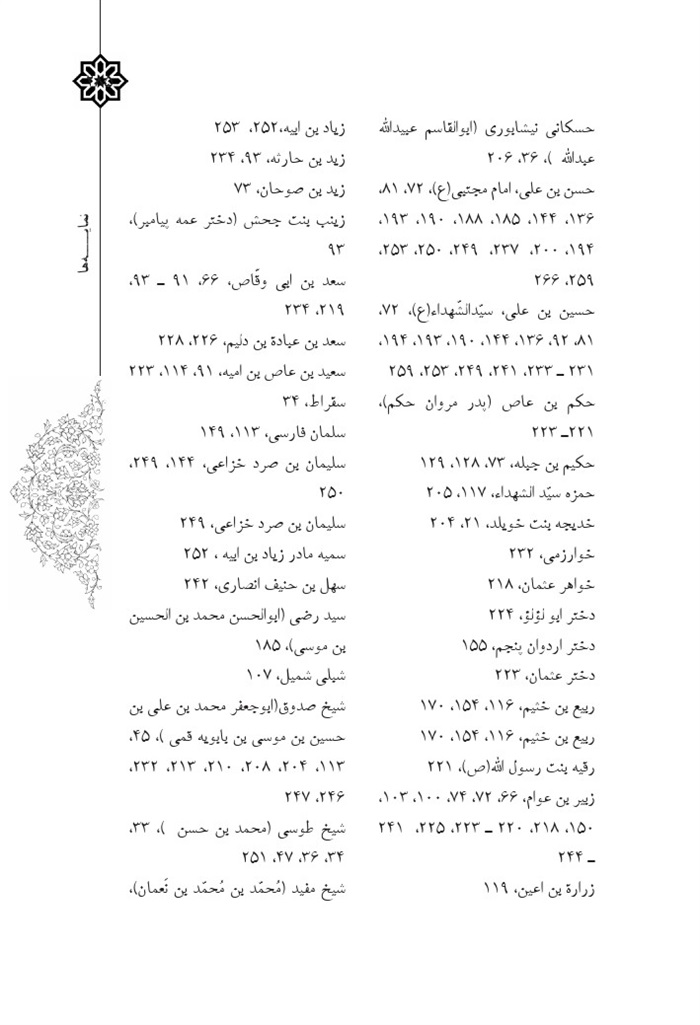 نمایـــه‌ها
حسکانی نیشابوری (ابوالقاسم عبیدالله
عبدالله )، ۳۶، ۲۰۶
حسن بن علی، امام مجتبی(ع)، ۷۲، ۸۱،
۱۳۶، ۱۴۴، ۱۸۵، ۱۸۸، ۱۹۰، ۱۹۳،
۱۹۴، ۲۰۰، ۲۳۷، ۲۴۹، ۲۵۰، ۲۵۳،
۲۵۹، ۲۶۶
حسین بن علی، سیّدالشّهداء(ع)، ۷۲،
۸۱، ۹۲، ۱۳۶، ۱۴۴، ۱۹۰، ۱۹۳، ۱۹۴،
۲۳۱ ـ ۲۳۳، ۲۴۱، ۲۴۹، ۲۵۳، ۲۵۹
حکم بن عاص (پدر مروان حکم)،
۲۲۱ـ ۲۲۳
حکیم بن جبله، ۷۳، ۱۲۸، ۱۲۹
حمزه سیّد الشهداء، ۱۱۷، ۲۰۵
خدیجه بنت خویلد، ۲۱، ۲۰۴
خوارزمی، ۲۳۲
خواهر عثمان، ۲۱۸
دختر ابو لؤلؤ، ۲۲۴
دختر اردوان پنجم، ۱۵۵
دختر عثمان، ۲۲۳
ربیع بن خثیم، ۱۱۶، ۱۵۴، ۱۷۰
ربیع بن خثیم، ۱۱۶، ۱۵۴، ۱۷۰
رقیه بنت رسول الله(ص)، ۲۲۱
زبیر بن عوام، ۶۶، ۷۲، ۷۴، ۱۰۰، ۱۰۳،
۱۵۰، ۲۱۸، ۲۲۰ ـ ۲۲۳، ۲۲۵، ۲۴۱
ـ ۲۴۴
زرارة بن اعین، ۱۱۹
زیاد بن ابیه،۲۵۲، ۲۵۳
زید بن حارثه، ۹۳، ۲۳۴
زید بن صوحان، ۷۳
زینب بنت جحش (دختر عمه پیامبر)،
۹۳
سعد بن ابی وقّاص، ۶۶، ۹۱ ـ ۹۳،
۲۱۹، ۲۳۴
سعد بن عبادة بن دلیم، ۲۲۶، ۲۲۸
سعید بن عاص بن امیه، ۹۱، ۱۱۴، ۲۲۳
سقراط، ۳۴
سلمان فارسی، ۱۱۳، ۱۴۹
سلیمان بن صرد خزاعی، ۱۴۴، ۲۴۹،
۲۵۰
سلیمان بن صرد خزاعی، ۲۴۹
سمیه مادر زیاد بن ابیه ، ۲۵۲
سهل بن حنیف انصاری، ۲۴۲
سید رضی (ابوالحسن محمد بن الحسین
بن موسی)، ۱۸۵
شبلی شمیل، ۱۰۷
شیخ صدوق(ابوجعفر محمد بن علی بن
حسین بن موسی بن بابویه قمی )، ۴۵،
۱۱۳، ۲۰۴، ۲۰۸، ۲۱۰، ۲۱۳، ۲۳۲،
۲۴۶، ۲۴۷
شیخ طوسی (محمد بن حسن )، ۳۳،
۳۴، ۳۶، ۴۷، ۲۵۱
شیخ مفید (مُحمّد بن مُحمّد بن نَعمان)،